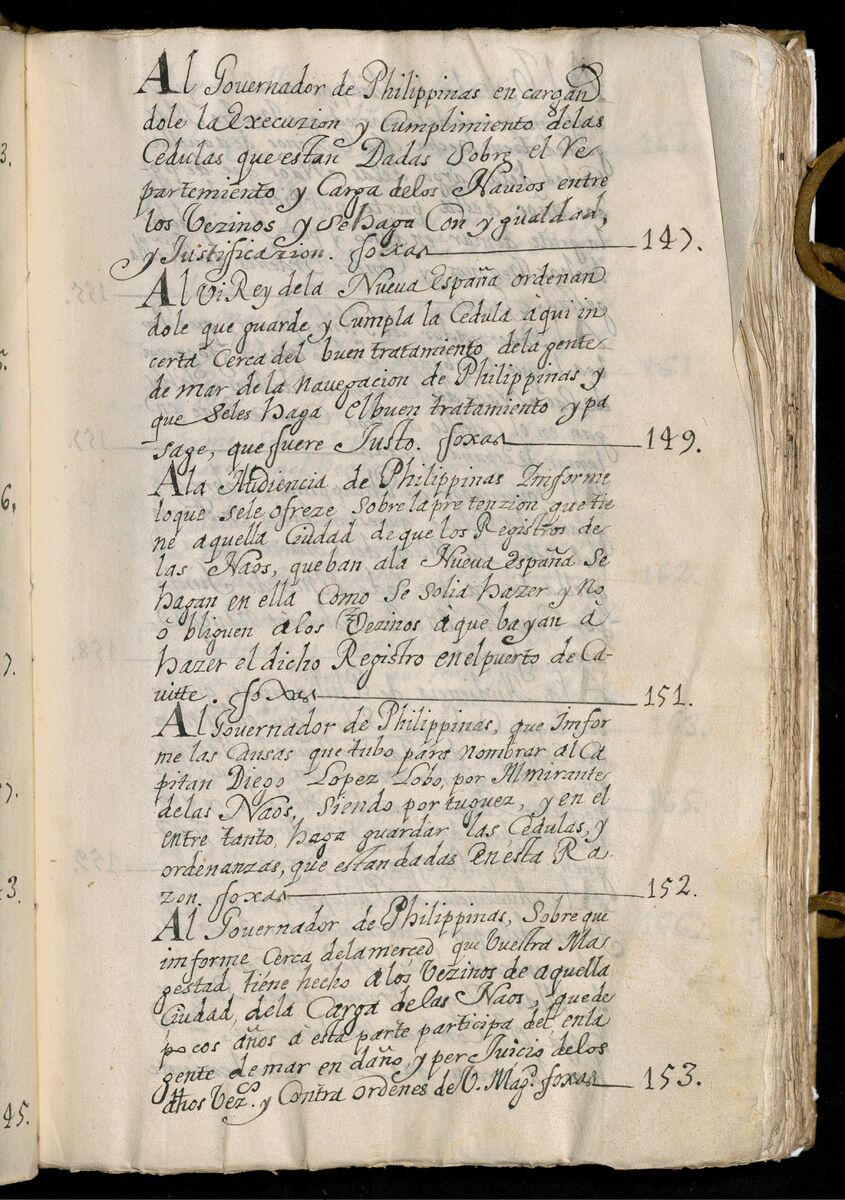 Al Governador de Philippinas en cargan
dole la Execuzion y Cumplimiento delas
Cedulas que estan Dadas Sobre el Re
partemiento y Carga delos Navios entre
los Vezinos y Sehaga Con y gualdad,
y Justificazion. foxas 147.
Al Vi Rey dela Nueva España ordenan
dole que guarde y Cumpla la Cedula àqui in
certa Cerca del buen tratamiento dela gente
de mar de la navegacion de Philippinas y
que Seles haga El buen tratamiento y pa
sage, que fuere Justo. foxas 149.
A la Audiencia de Philippinas Imforme
loque sele ofreze Sobre la pre tenzion que tie
ne aquella Ciudad de que los Registros de
las Naos, queban ala Nueva España Se
hagan en ella Como Se Solia hazer y No
ò bliguen à los Vezinos à que bayan à
hazer el dicho Registro en el puerto de Ca-
vitte. foxas 151.
Al Governador de Philippinas, que Imfor
me las Causas que tubo para nombrar al Ca
pitan Diego Lopez Lobo, por Almirante
delas Naos, Siendo portuguez, y en el
entre tanto haga guardar las Cedulas, y
ordenanzas, que estan dadas En esta Ra-
zon. foxas 152.
Al Governador de Philippinas, Sobre que
imforme Cerca dela merced que Vuestra Ma
gestad tiene hecho a los Vezinos de aquella
Ciudad, dela Carga de las Naos, que de
pocos años à esta parte participa del, en la
gente de mar en daño, y per Juicio delos
dhos Vezos. y Contra ordenes de V. Magd. foxas 153.
3.
6.
45.